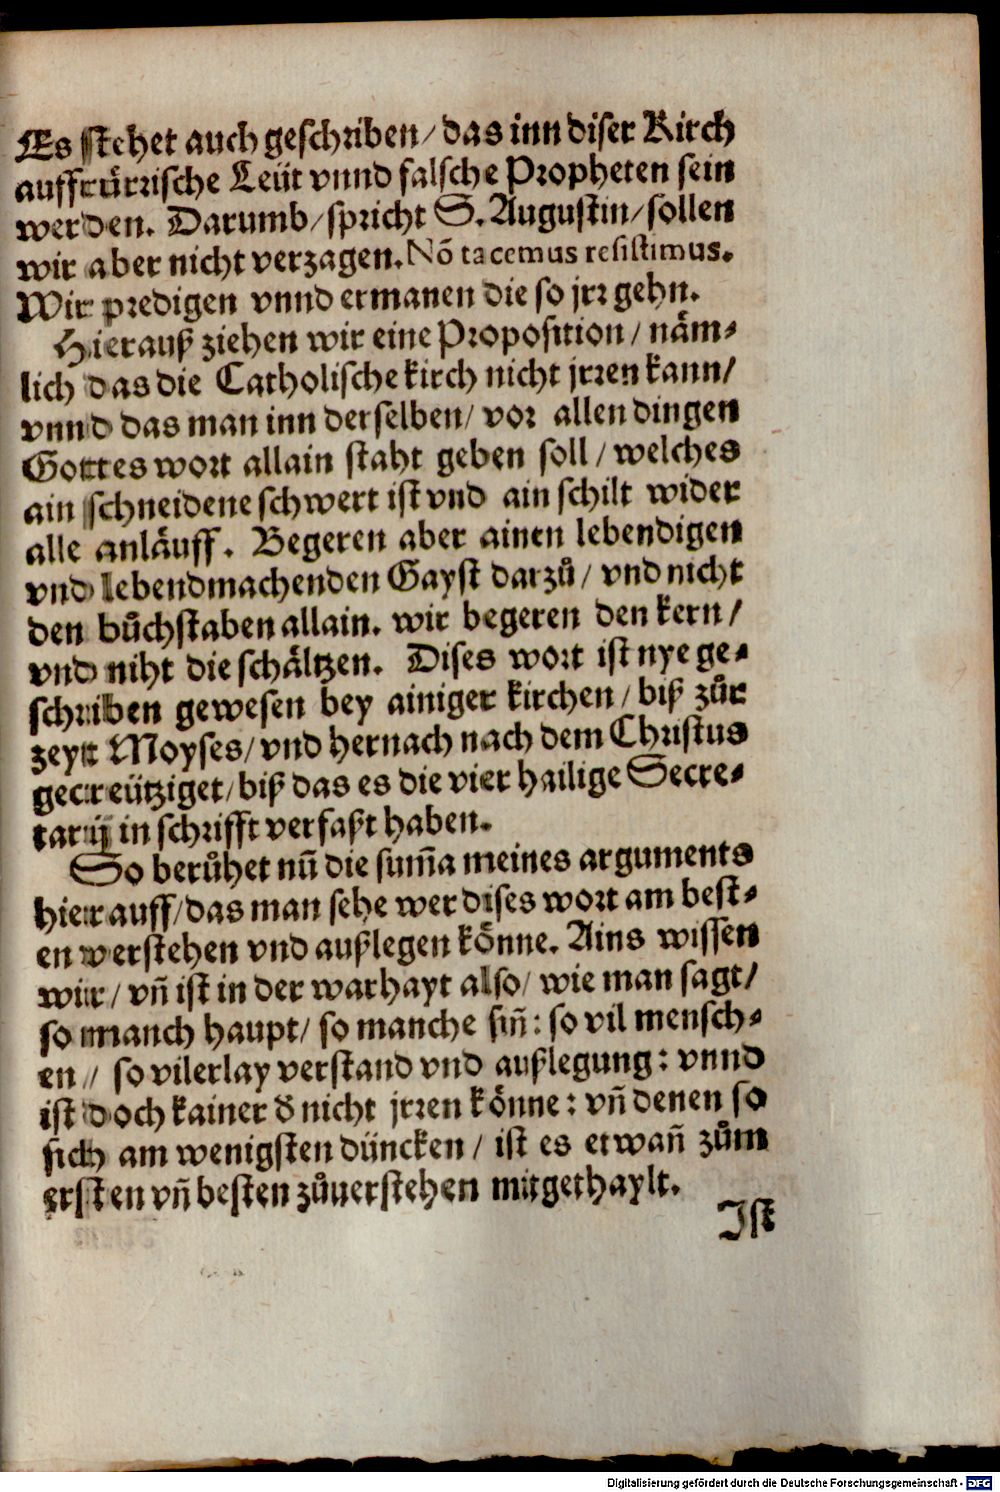 Es stehet auch geschriben / das inn diser Kirch
auffrürrische Leüt vnnd falsche Propheten sein
werden. Darumb / spricht S. Augustin / sollen
wir aber nicht verzagen. Nõ tacemus resistimus.
Wir predigen vnnd ermanen die so jrr gehn.
Hierauß ziehen wir eine Proposition / näm-
lich das die Catholische kirch nicht jrren kann /
vnnd das man inn derselben / vor allen dingen
Gottes wort allain staht geben soll / welches
ain schneidene schwert ist vnd ain schilt wider
alle anläuff. Begeren aber ainen lebendigen
vnd lebendmachenden Gayst darzů / vnd nicht
den bůchstaben allain. wir begeren den kern /
vnd niht die schältzen. Dises wort ist nye ge-
schriben gewesen bey ainiger kirchen / biß zůr
zeyt Moyses / vnd hernach nach dem Christus
gecreütziget / biß das es die vier hailige Secre-
tarij in schrifft verfaßt haben.
So berůhet nũ die sum̃a meines arguments
hierauff / das man sehe wer dises wort am best-
en verstehen vnd außlegen könne. Ains wissen
wir / vñ ist in der warhayt also / wie man sagt /
so manch haupt / so manche siñ : so vil mensch-
en / so vilerlay verstand vnd außlegung : vnnd
ist doch kainer d̕ nicht jrren könne : vñ denen so
sich am wenigsten düncken / ist es etwañ zům
ersten vñ besten zůuerstehen mitgethaylt.
Ist
Digitalisierung gefördert durch die Deutsche Forschungsgemeinschaft - DFG